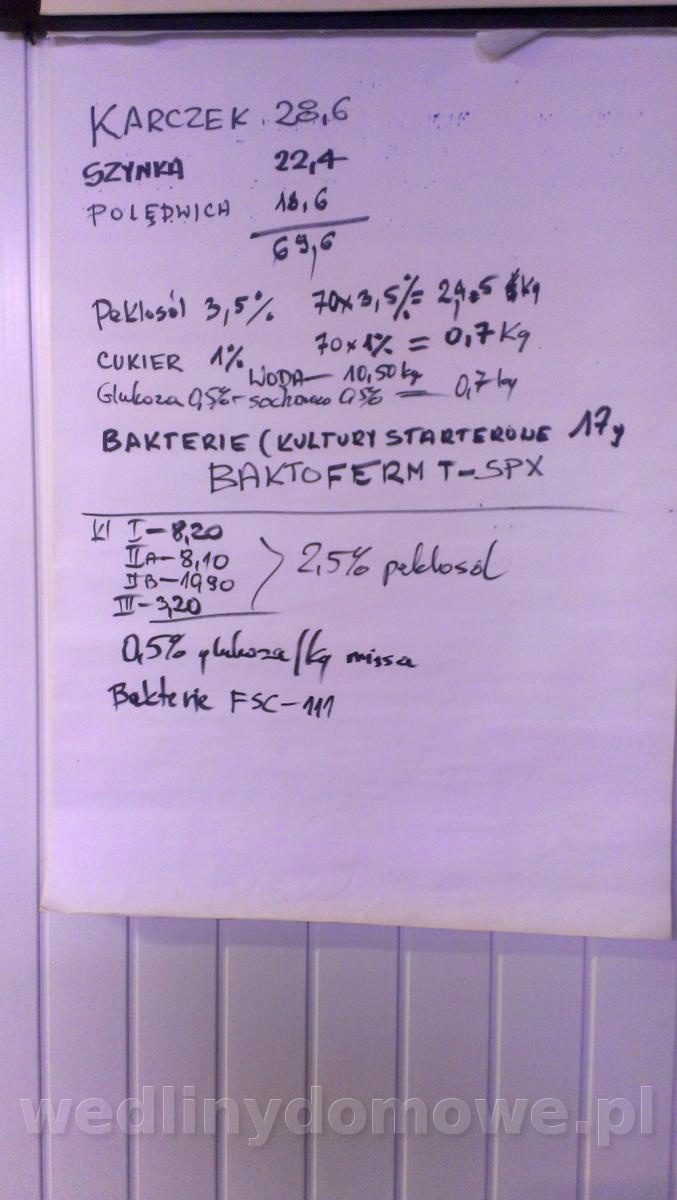 KARCZEK 28,6
SZYNKA 22,4
POLĘDWICA 18,6
69,6
Peklosól 3,5% 70x3,5%= 24.5 kg
CUKIER 1% 70x1% = 0,7 Kg
WODA— 10,50 kg
Glukoza 0,5%- 0,5% = 0,7 kg
BAKTERIE (KULTURY STARTEROWE 17g
BAKTOFERM T-SPX
Kl I-8,20
IIA-8,10
IIB-19,90
III-3,20
2,5% peklosól
0,5% glukoza/kg mięsa
Bakterie FSC-111
wedlinydomowe.pl